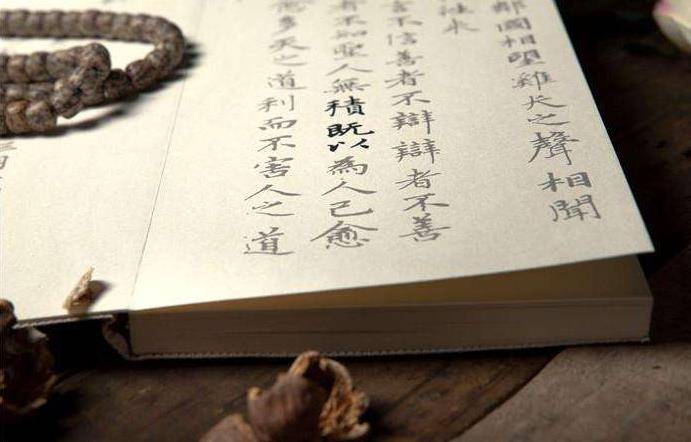 鄰國相望雞犬之聲相聞
往来
言不信善者不辯辯者不善
者不知聖人無積既以為人己愈
愈多天之道利而不害人之道